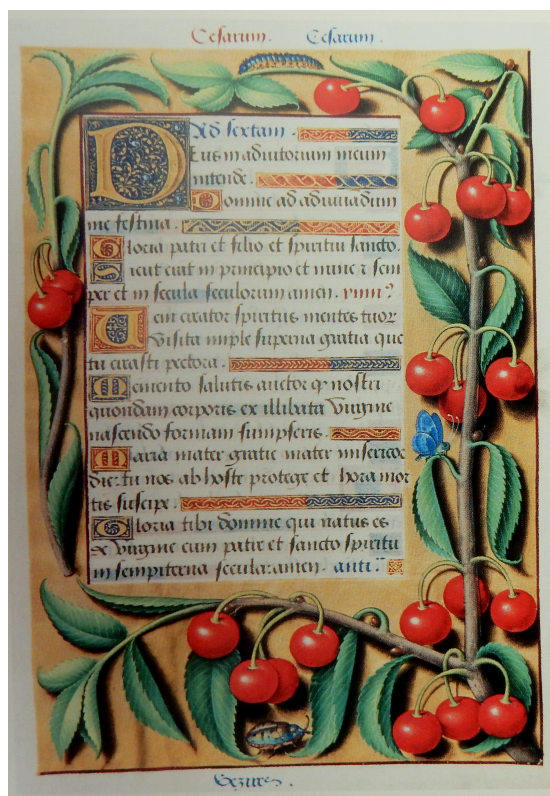 Cesarum. Cesarum.
Ad sextam.
Deus in adiutorium meum
intende.
Domine ad adiuuadum
me festina.
Gloria patri et filio et spiritui sancto.
Sicut erat in principio et nunc ⁊ sem
per et in secula seculorum amen. ymn?
Ueni creator spiritus mentes tuor
Visita imple superna gratia que
tu creasti pectora.
Memento salutis auctor qr nostri
quondam corporis ex illibata Virgine
nascendo formam sumpseris.
Maria mater gratie mater misericor
die. tu nos ab hoste protege et hora mor
tis suscipe.
Gloria tibi domine qui natus es
de Virgine cum patre et sancto spiritu
in sempiterna secula. amen. anti?